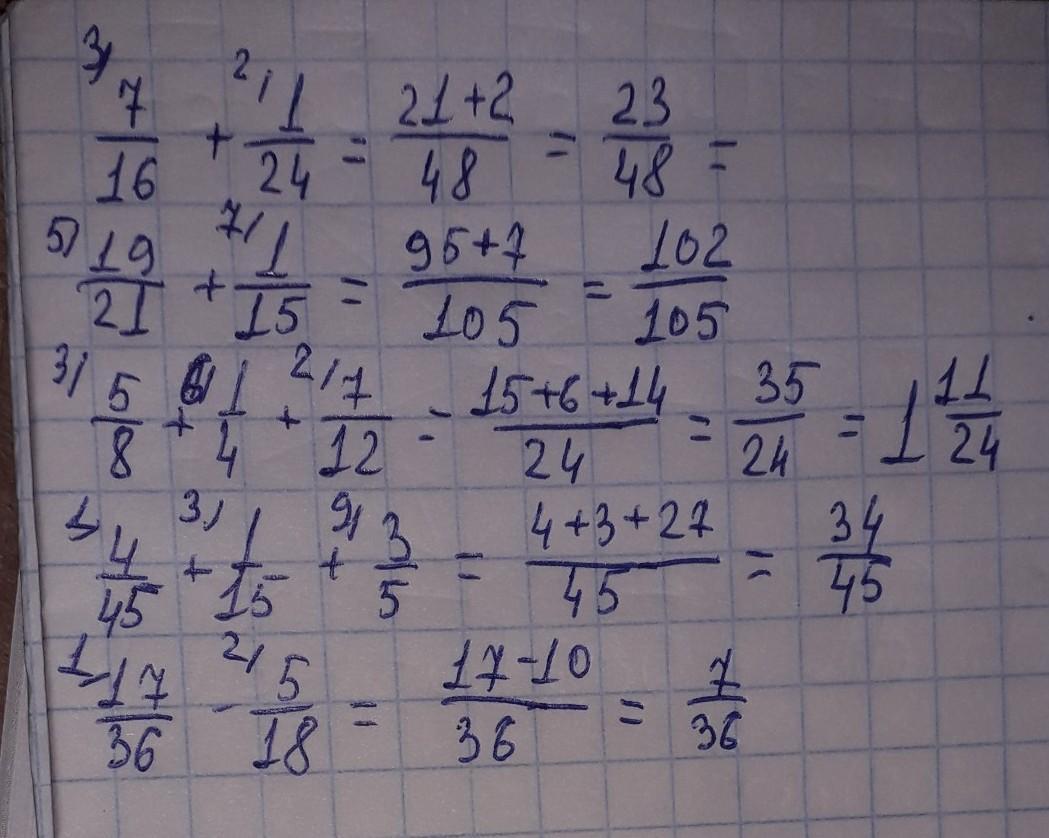 3/ 7/16 + 2/ 1/24 = 21+2/48 = 23/48 =
5/ 19/21 + 7/ 1/15 = 95+7/105 = 102/105
3/ 5/8 + 6/ 1/4 + 2/ 7/12 = 15+6+14/24 = 35/24 = 1 11/24
1/ 4/45 + 3/ 1/15 + 9/ 3/5 = 4+3+27/45 = 34/45
1/ 17/36 - 2/ 5/18 = 17-10/36 = 7/36